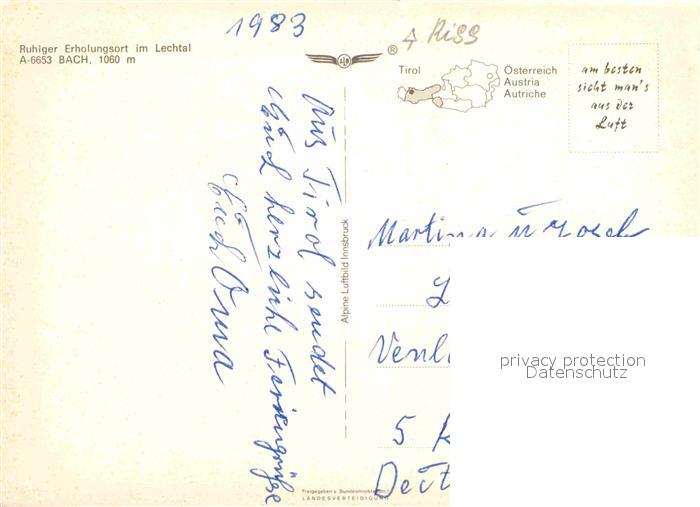 1983
Riss
Ruhiger Erholungsort im Lechtal
A-6653 BACH, 1060 m
®
Tirol
Österreich
Austria
Autriche
am besten
sieht man's
aus der
Luft
Aus Tirol sendet
Euch herzliche Feriengrüße
Oma
Alpine Luftbild Innsbruck
Martina u.
Venl
5
privacy protection
Datenschutz
Freigegeben v. Bundesministerium f.
LANDESVERTEIDIGUNG